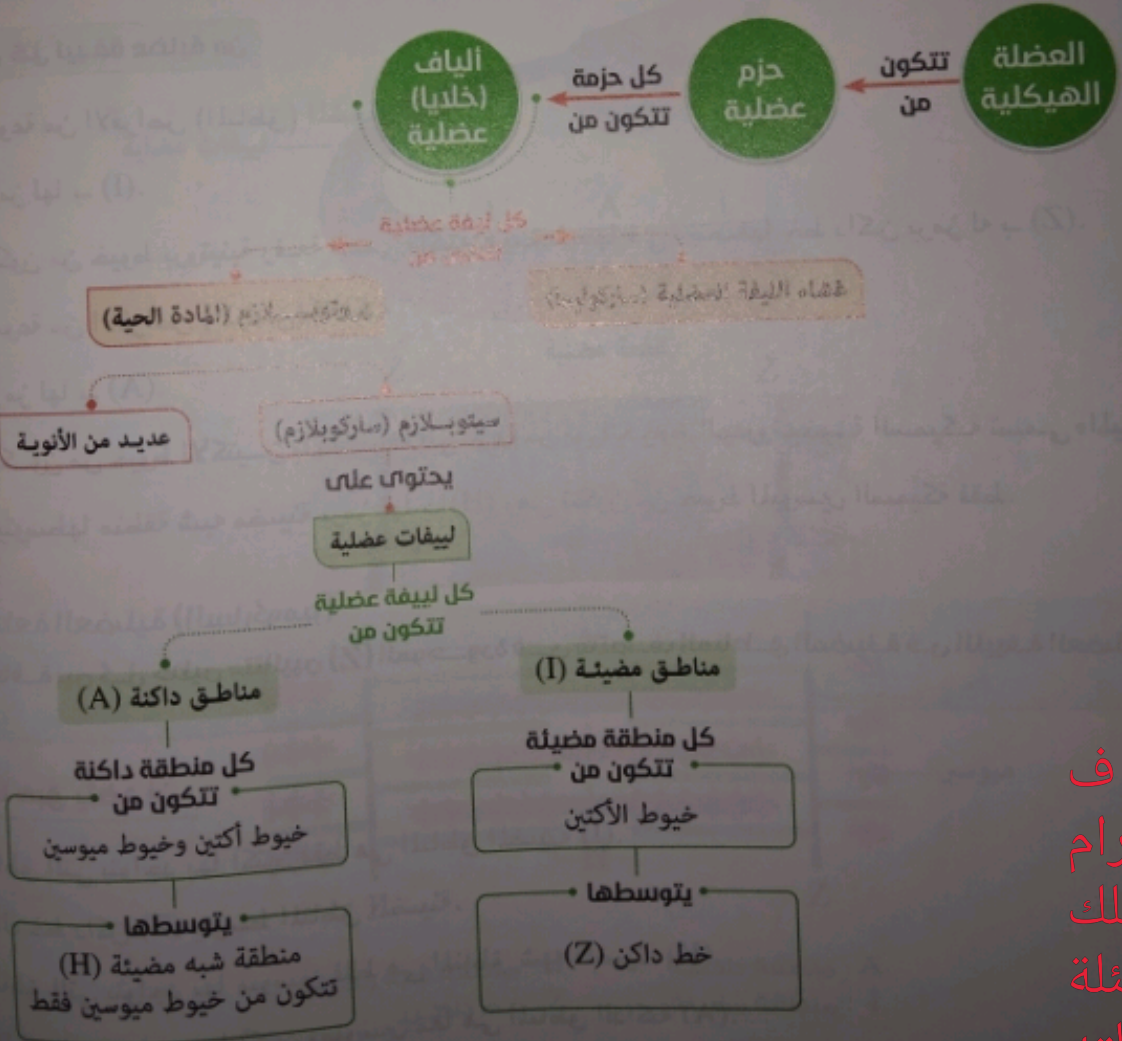 العضلة
الهيكلية
تتكون
من
حزم
عضلية
كل حزمة
تتكون من
ألياف
(خلايا)
عضلية
كل ليفة عضلية
تتكون من
غشاء الليفة العضلية (ساركوليما)
بروتوبلازم (المادة الحية)
سيتوبلازم (ساركوبلازم)
عديد من الأنوية
يحتوى على
لييفات عضلية
كل لييفة عضلية
تتكون من
مناطق مضيئة (I)
كل منطقة مضيئة
تتكون من
خيوط الأكتين
يتوسطها
خط داكن (Z)
مناطق داكنة (A)
كل منطقة داكنة
تتكون من
خيوط أكتين وخيوط ميوسين
يتوسطها
منطقة شبه مضيئة (H)
تتكون من خيوط ميوسين فقط